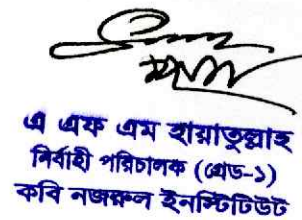 এ এফ এম হায়াতুল্লাহ
নির্বাহী পরিচালক (গ্রেড-১)
কবি নজরুল ইনস্টিটিউট